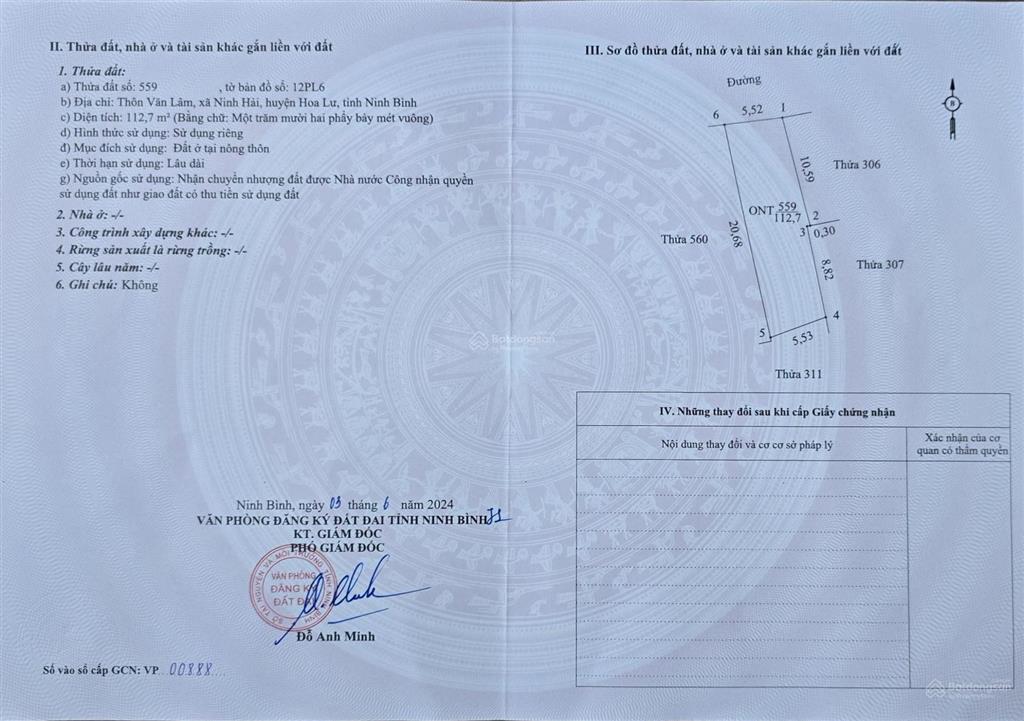 II. Thửa đất, nhà ở và tài sản khác gắn liền với đất
1. Thửa đất:
a) Thửa đất số: 559 , tờ bản đồ số: 12PL6
b) Địa chỉ: Thôn Văn Lâm, xã Ninh Hải, huyện Hoa Lư, tỉnh Ninh Bình
c) Diện tích: 112,7 m² (Bằng chữ: Một trăm mười hai phẩy bảy mét vuông)
d) Hình thức sử dụng: Sử dụng riêng
đ) Mục đích sử dụng: Đất ở tại nông thôn
e) Thời hạn sử dụng: Lâu dài
g) Nguồn gốc sử dụng: Nhận chuyển nhượng đất được Nhà nước Công nhận quyền
sử dụng đất như giao đất có thu tiền sử dụng đất
2. Nhà ở: -/-
3. Công trình xây dựng khác: -/-
4. Rừng sản xuất là rừng trồng: -/-
5. Cây lâu năm: -/-
6. Ghi chú: Không
Ninh Bình, ngày 03 tháng 6 năm 2024
VĂN PHÒNG ĐĂNG KÝ ĐẤT ĐAI TỈNH NINH BÌNH
KT. GIÁM ĐỐC
PHÓ GIÁM ĐỐC
SỞ TÀI NGUYÊN VÀ MÔI TRƯỜNG TỈNH NINH BÌNH
VĂN PHÒNG
ĐĂNG KÝ
ĐẤT ĐAI
Đỗ Anh Minh
Số vào sổ cấp GCN: VP 00888
III. Sơ đồ thửa đất, nhà ở và tài sản khác gắn liền với đất
Đường
B
6 5,52 1
10,59
Thửa 306
ONT 559
112,7
2
3 0,30
20,68
Thửa 560
8,82
Thửa 307
4
5
5,53
Thửa 311
IV. Những thay đổi sau khi cấp Giấy chứng nhận
Nội dung thay đổi và cơ cơ sở pháp lý
Xác nhận của cơ
quan có thẩm quyền
Batdongsan
Batdongsan